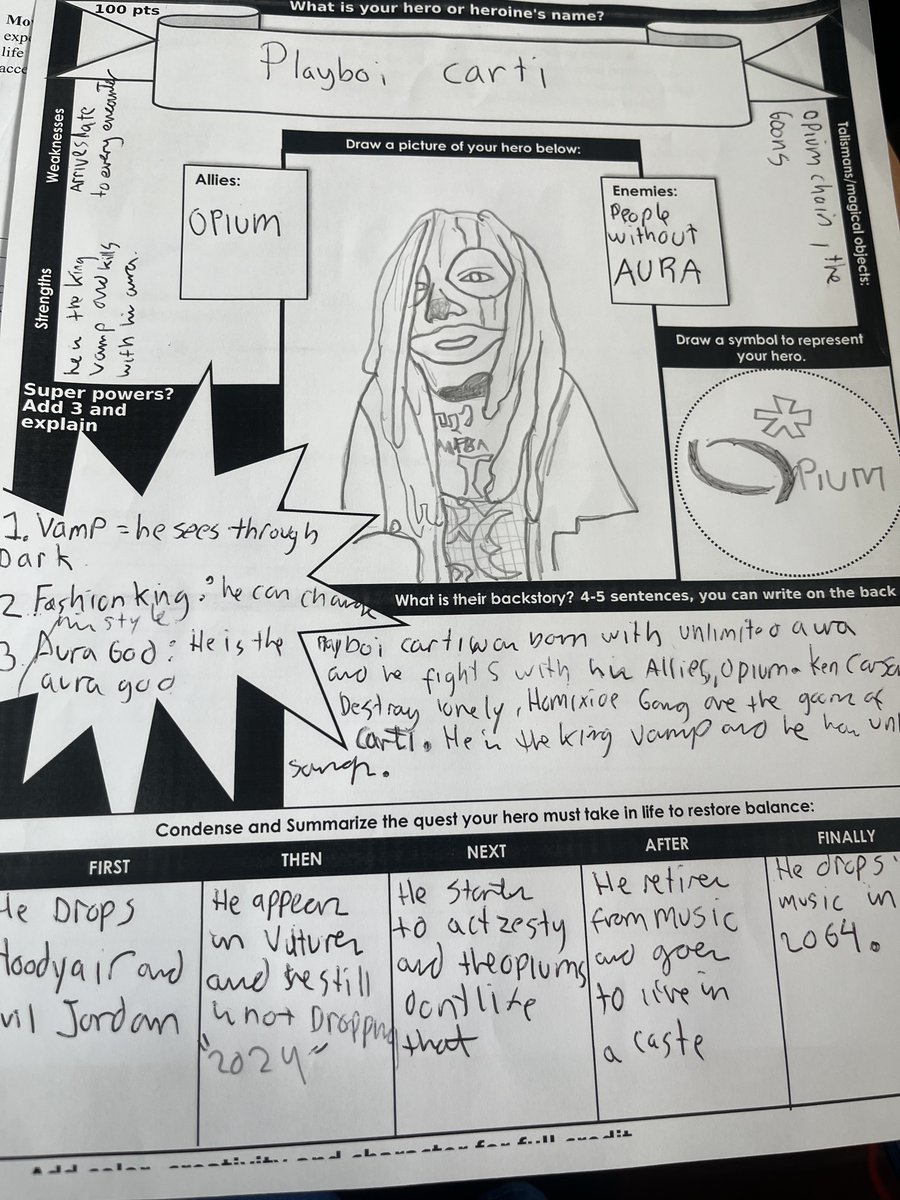 Mo
exp
life
acce
100 pts
What is your hero or heroine's name?
Playboi carti
Weaknesses
Arrives late
to every encounter
Strengths
he is the king
vamp and kills
with his aura.
Allies:
OPIUM
Draw a picture of your hero below:
Enemies:
People
without
AURA
Talismans/magical objects:
opium chain, the
goons
Draw a symbol to represent
your hero.
OPIUM
Super powers?
Add 3 and
explain
1. Vamp = he sees through
Dark.
2. Fashion king: he can change
his style
3. Aura God: He is the
aura god
What is their backstory? 4-5 sentences, you can write on the back
Playboi carti was born with unlimited aura
and he fights with his Allies, Opium. Ken Carson
Destroy lonely, Homixide Gang are the goons of
carti. He is the king vamp and he has unl
Condense and Summarize the quest your hero must take in life to restore balance:
FIRST
He Drops
Hoodyair and
vil Jordan
THEN
He appears
in Vultures
and he still
is not Dropping
"2024"
NEXT
He starts
to act zesty
and the opiums
dont like
that
AFTER
He retires
from music
and goes
to live in
a caste
FINALLY
He drops
music in
2064.